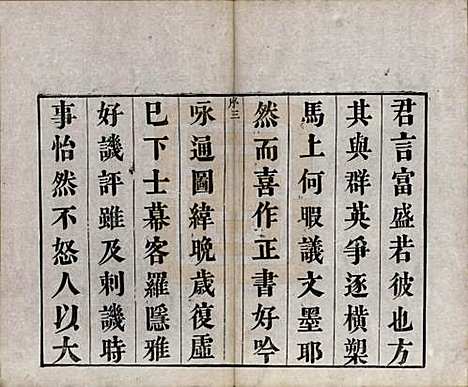 君言富盛若彼也方
其與群英爭逐橫槊
馬上何暇議文墨耶
然而喜作正書好吟
序三
咏通圖緯晚歲復虛
已下士幕客羅隱雅
好譏評雖及刺譏時
事怡然不怒人以大